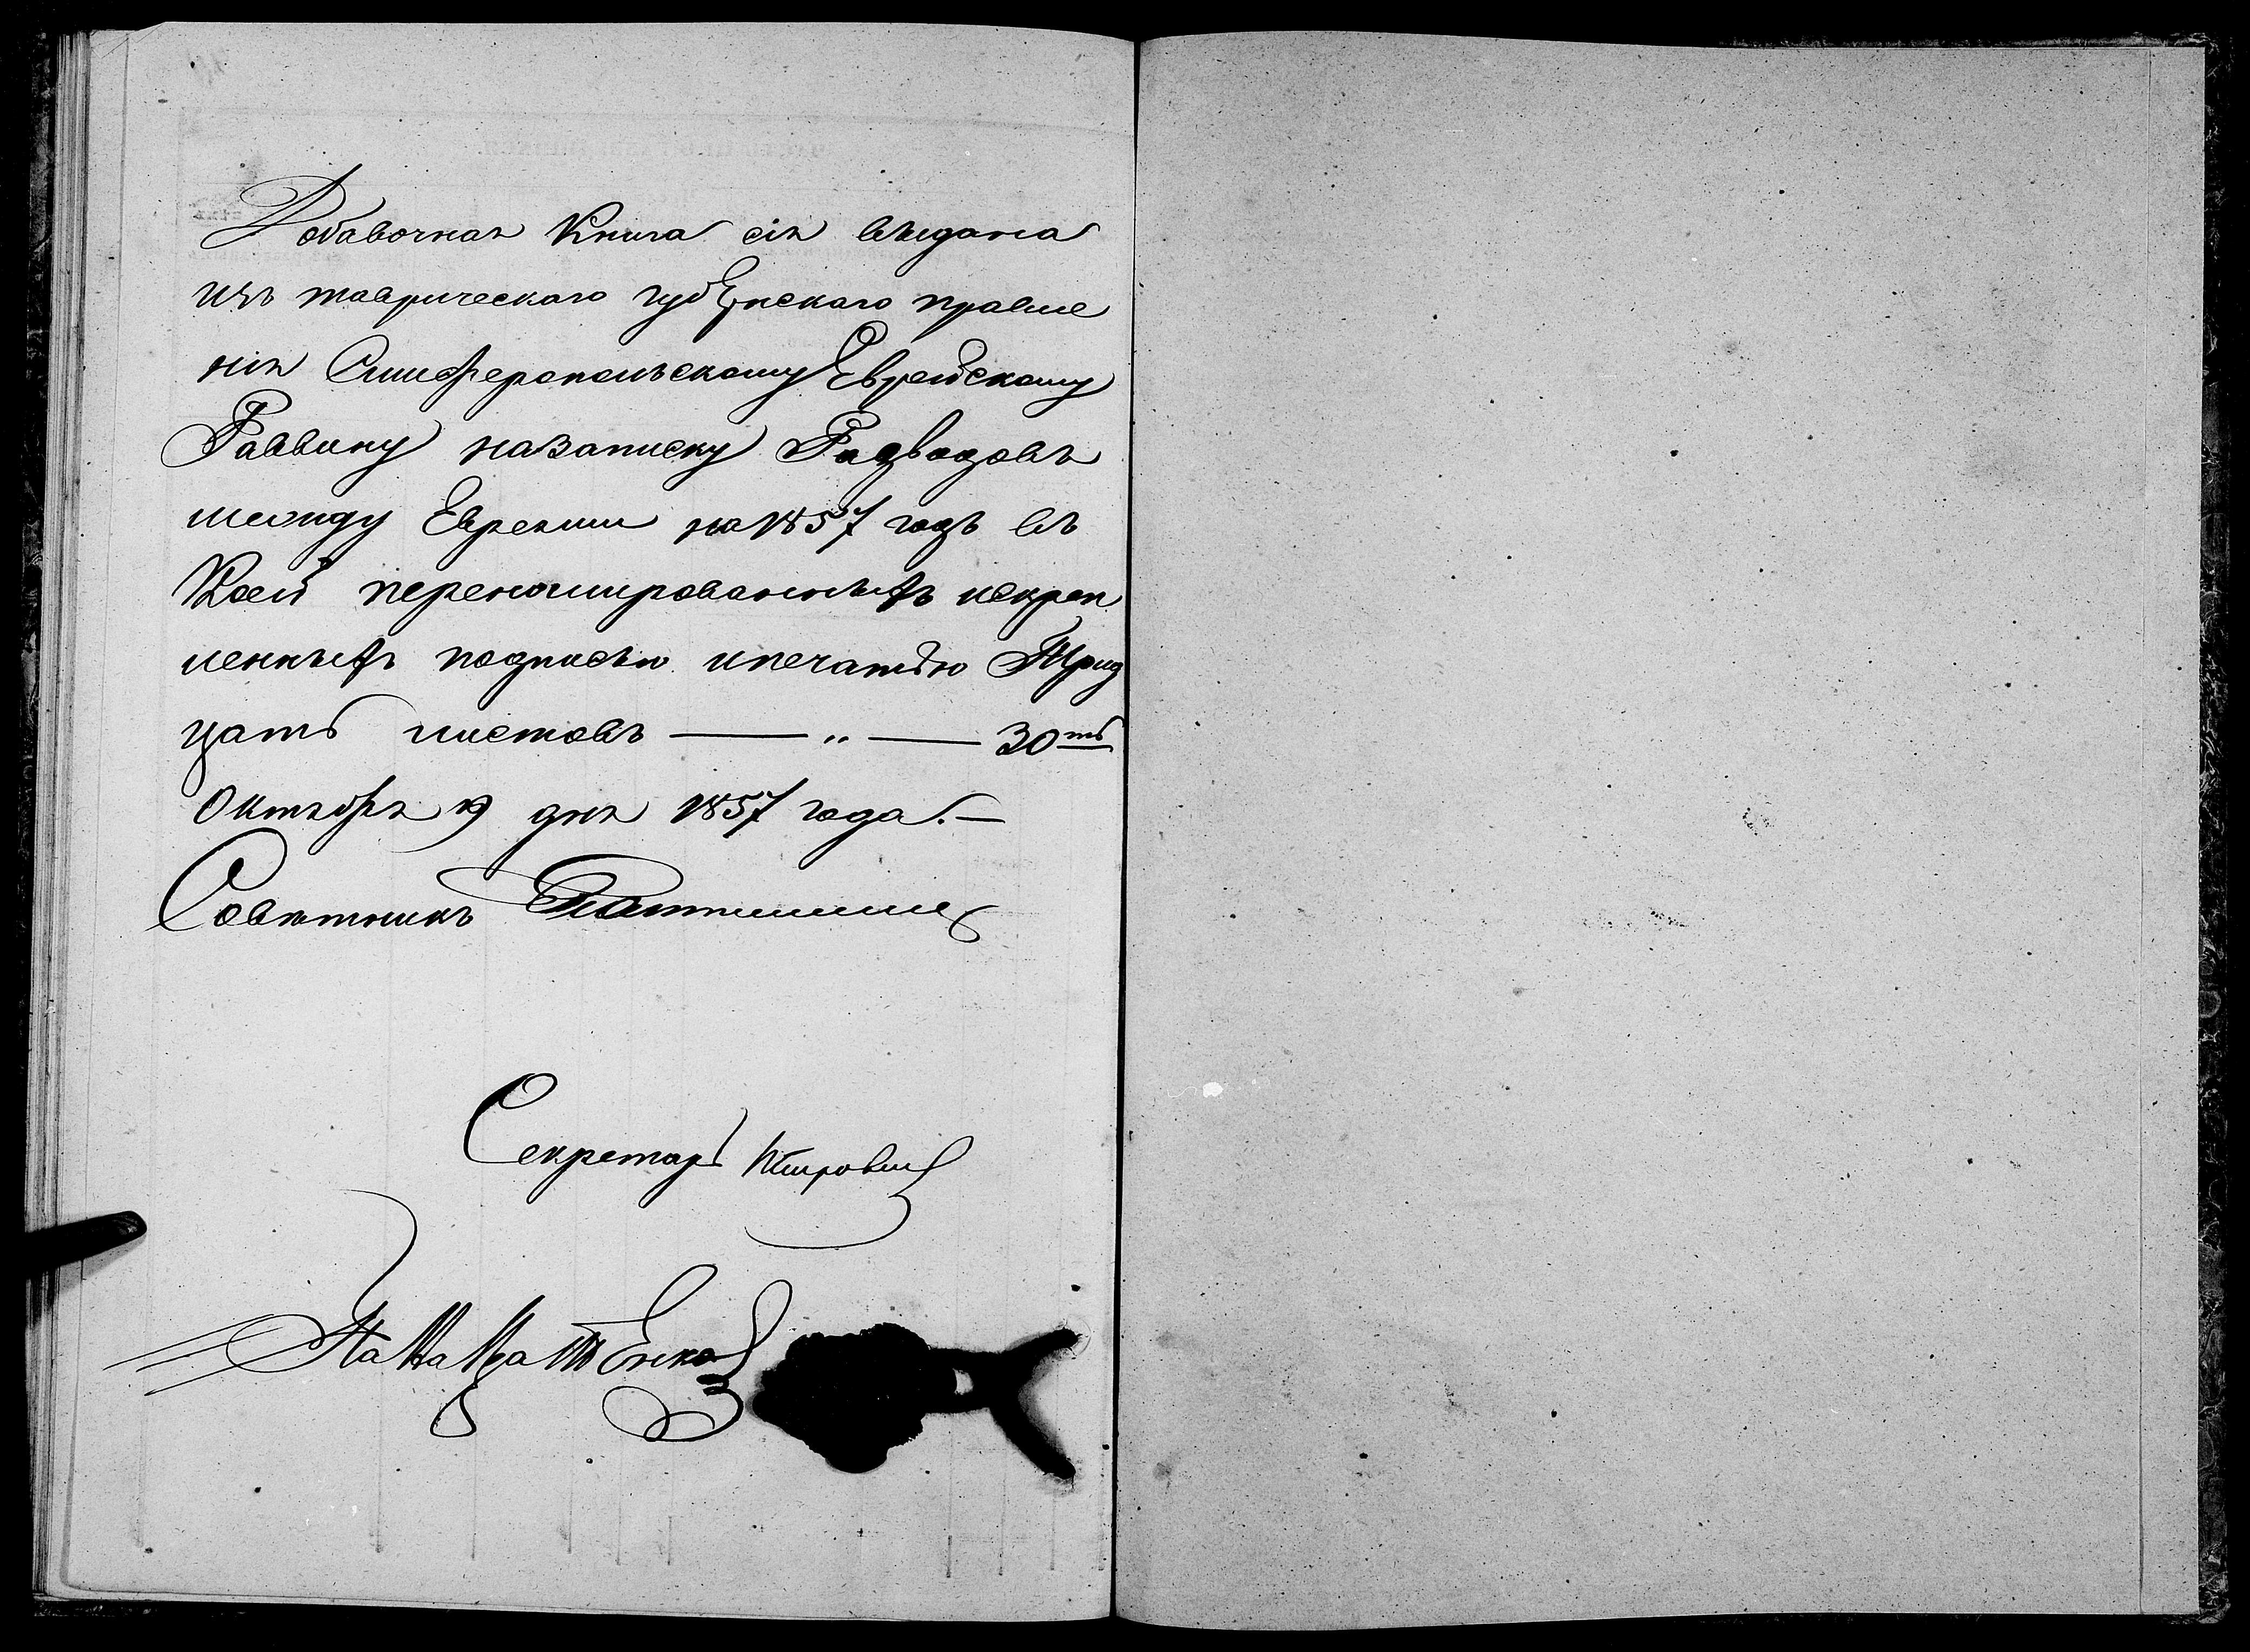 Добавочная Книга сія выдана
изъ таврическаго губернскаго правле
нія Симферопольскому Еврейскому
Раввину на записку Разводовъ
между Евреями на 1857 годъ въ
Коей перенумированныхъ искреп
ленныхъ подписью ипечатью Трид
цать листовъ — „ — 30ть
Октября 9 дня 1857 года. —
Совѣтникъ
Секретарь